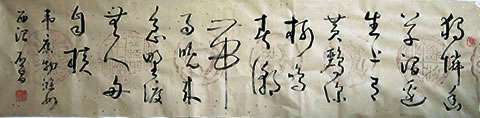 獨憐幽
草澗邊
生上有
黄鸝深
樹鳴
春潮
帶
雨晚來
急野渡
無人舟
自横
韋應物滁州
西澗